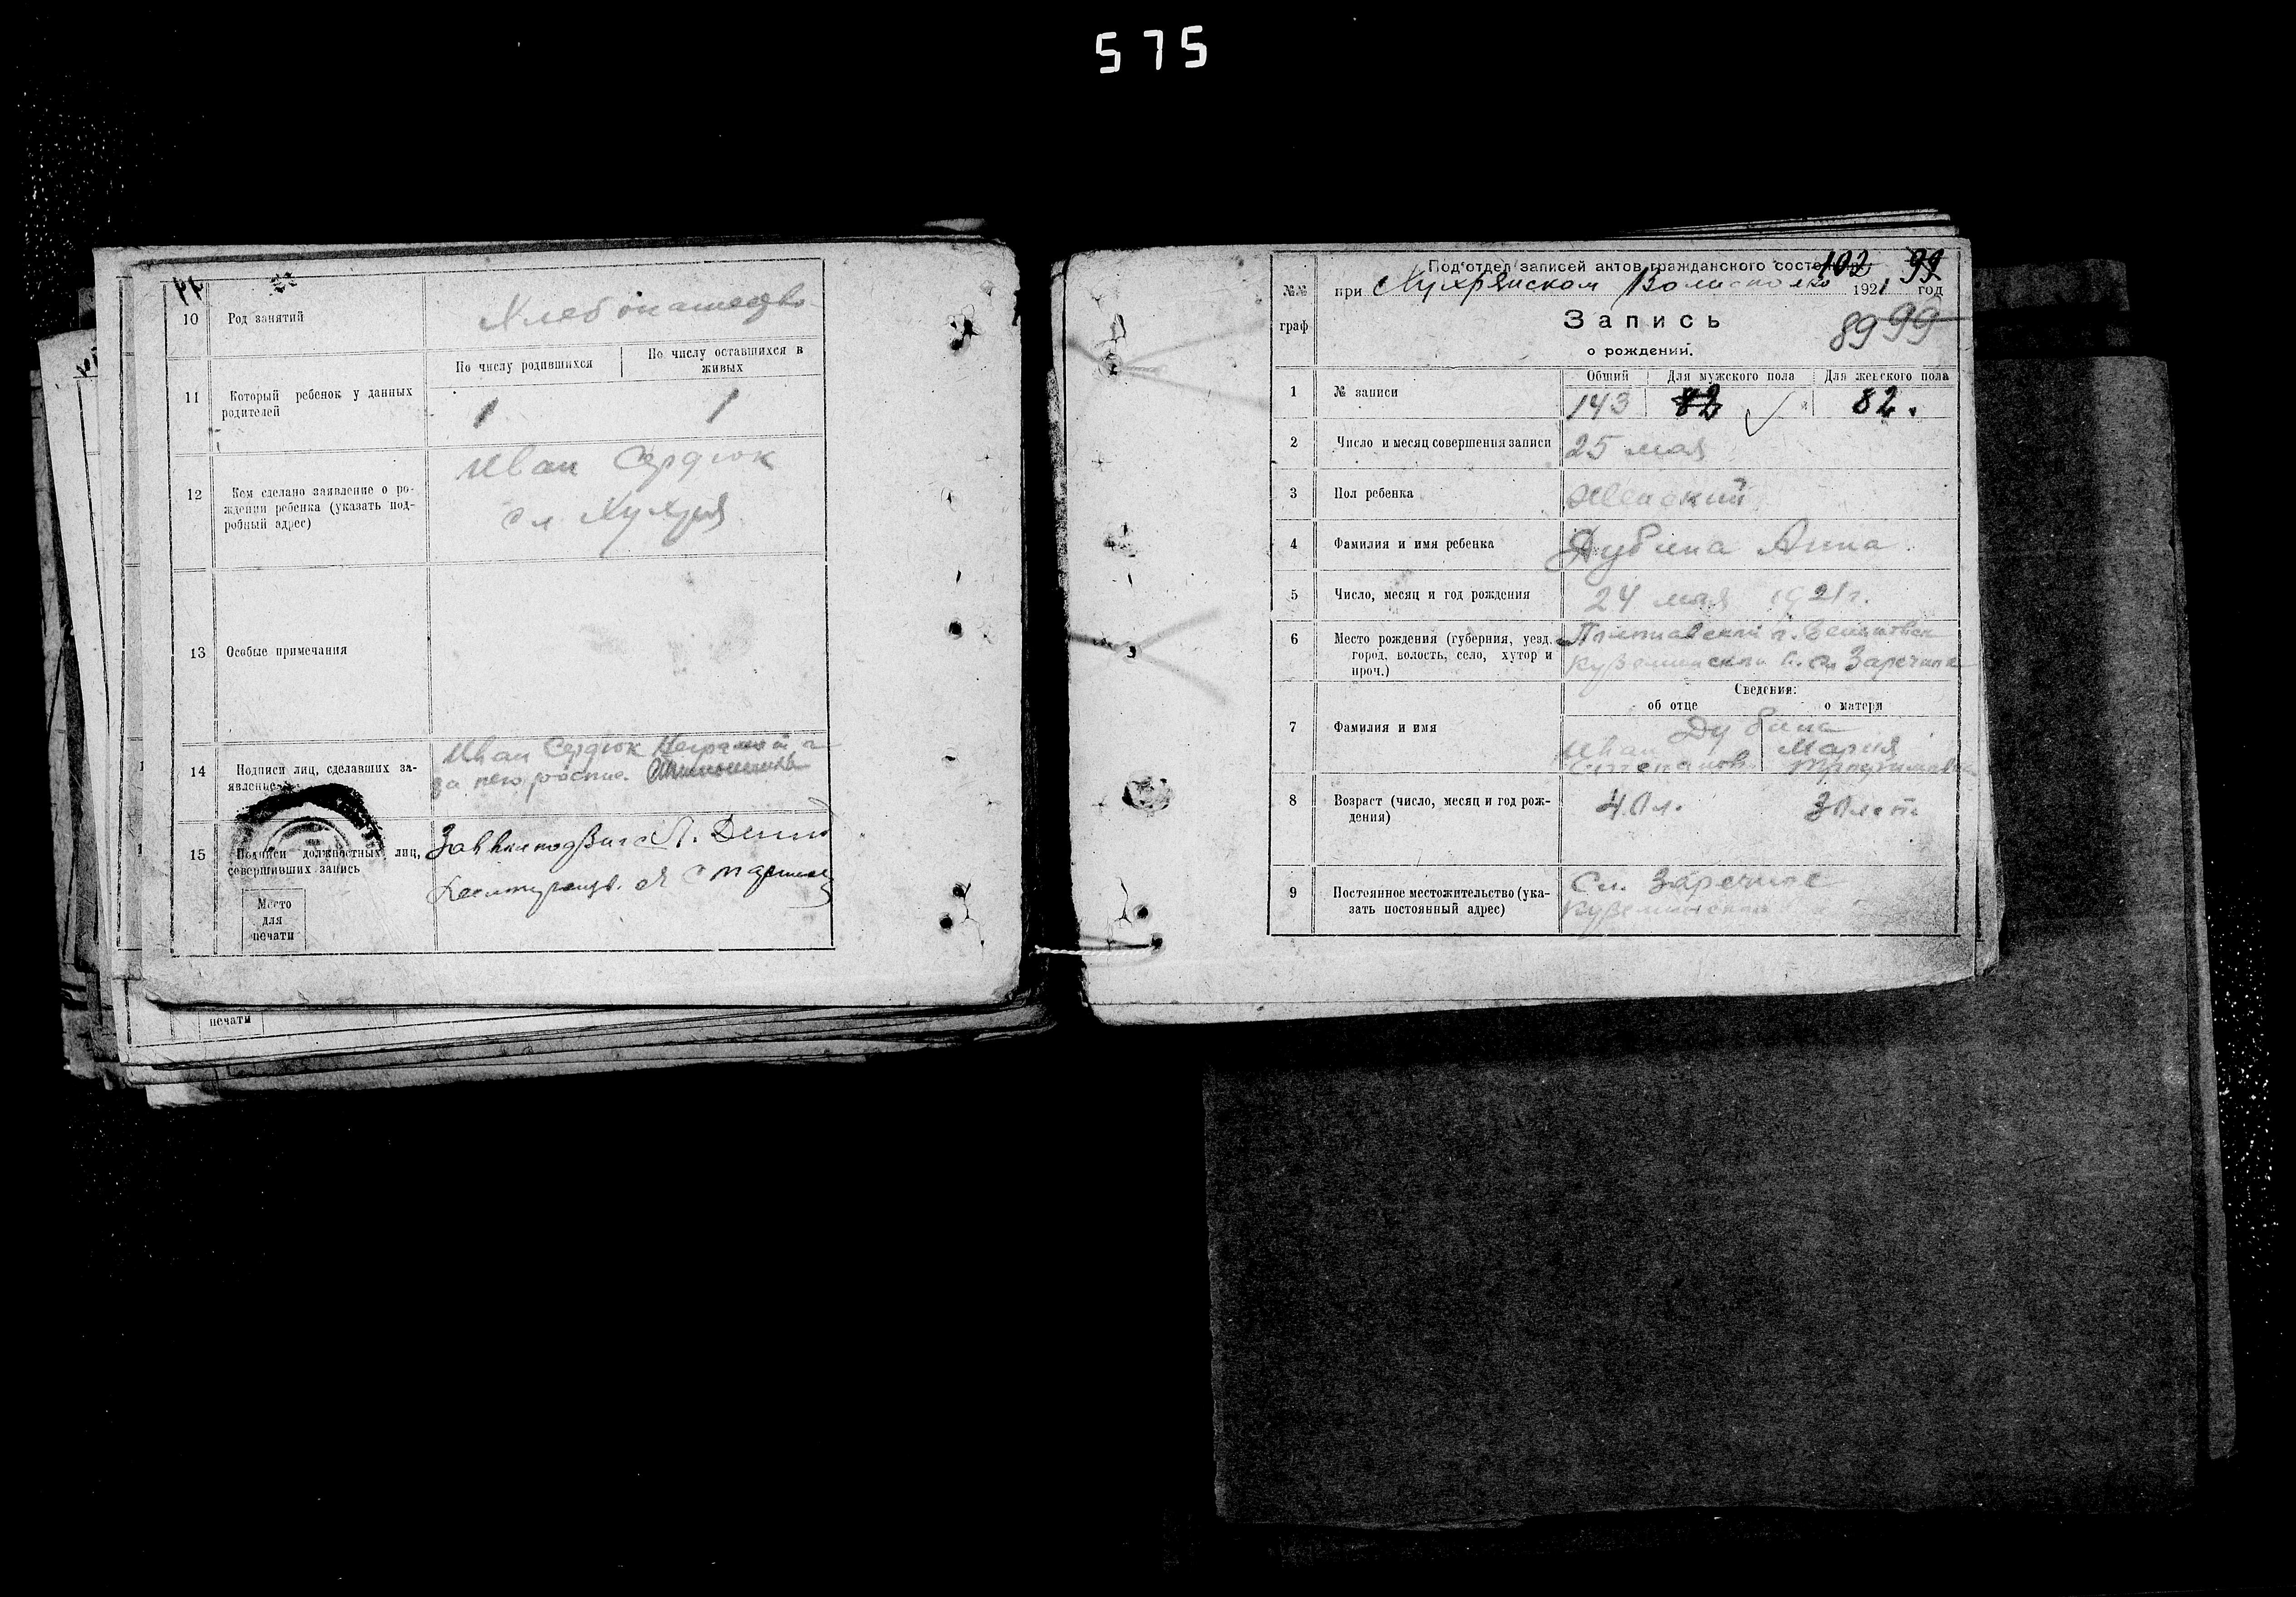 575
10 Род занятий Хлебопашество
По числу родившихся По числу оставшихся в живых
11 Который ребенок у данных родителей 1 1
12 Кем сделано заявление о ро-
ждении ребенка (указать под-
робный адрес)
Иван Сердюк
сл. Хухря
13 Особые примечания
14 Подписи лиц, сделавших за-
явление
Иван Сердюк Неграмотн а
за него роспис.
15 Подписи должностных лиц,
совершивших запись
Место
для
печати
печати
Под'отдел записей актов гражданского состо 102 99
№№ граф
при Хухрянском Волисполко 1921 год
Запись
89 99
о рождении.
Общий Для мужского пола Для женского пола
1 № записи 143 82 82.
2 Число и месяц совершения записи 25 мая
3 Пол ребенка Женский
4 Фамилия и имя ребенка Дубина Анна
5 Число, месяц и год рождения 24 мая 1921 г.
6 Место рождения (губерния, уезд,
город, волость, село, хутор и
проч.)
Полтавской г.
сл Заречная
Сведения:
об отце о матери
7 Фамилия и имя Дубина
Иван Мария
Степанов
8 Возраст (число, месяц и год рож-
дения)
40 л. 30 лет
9 Постоянное местожительство (ука-
зать постоянный адрес)
Сл. Заречное